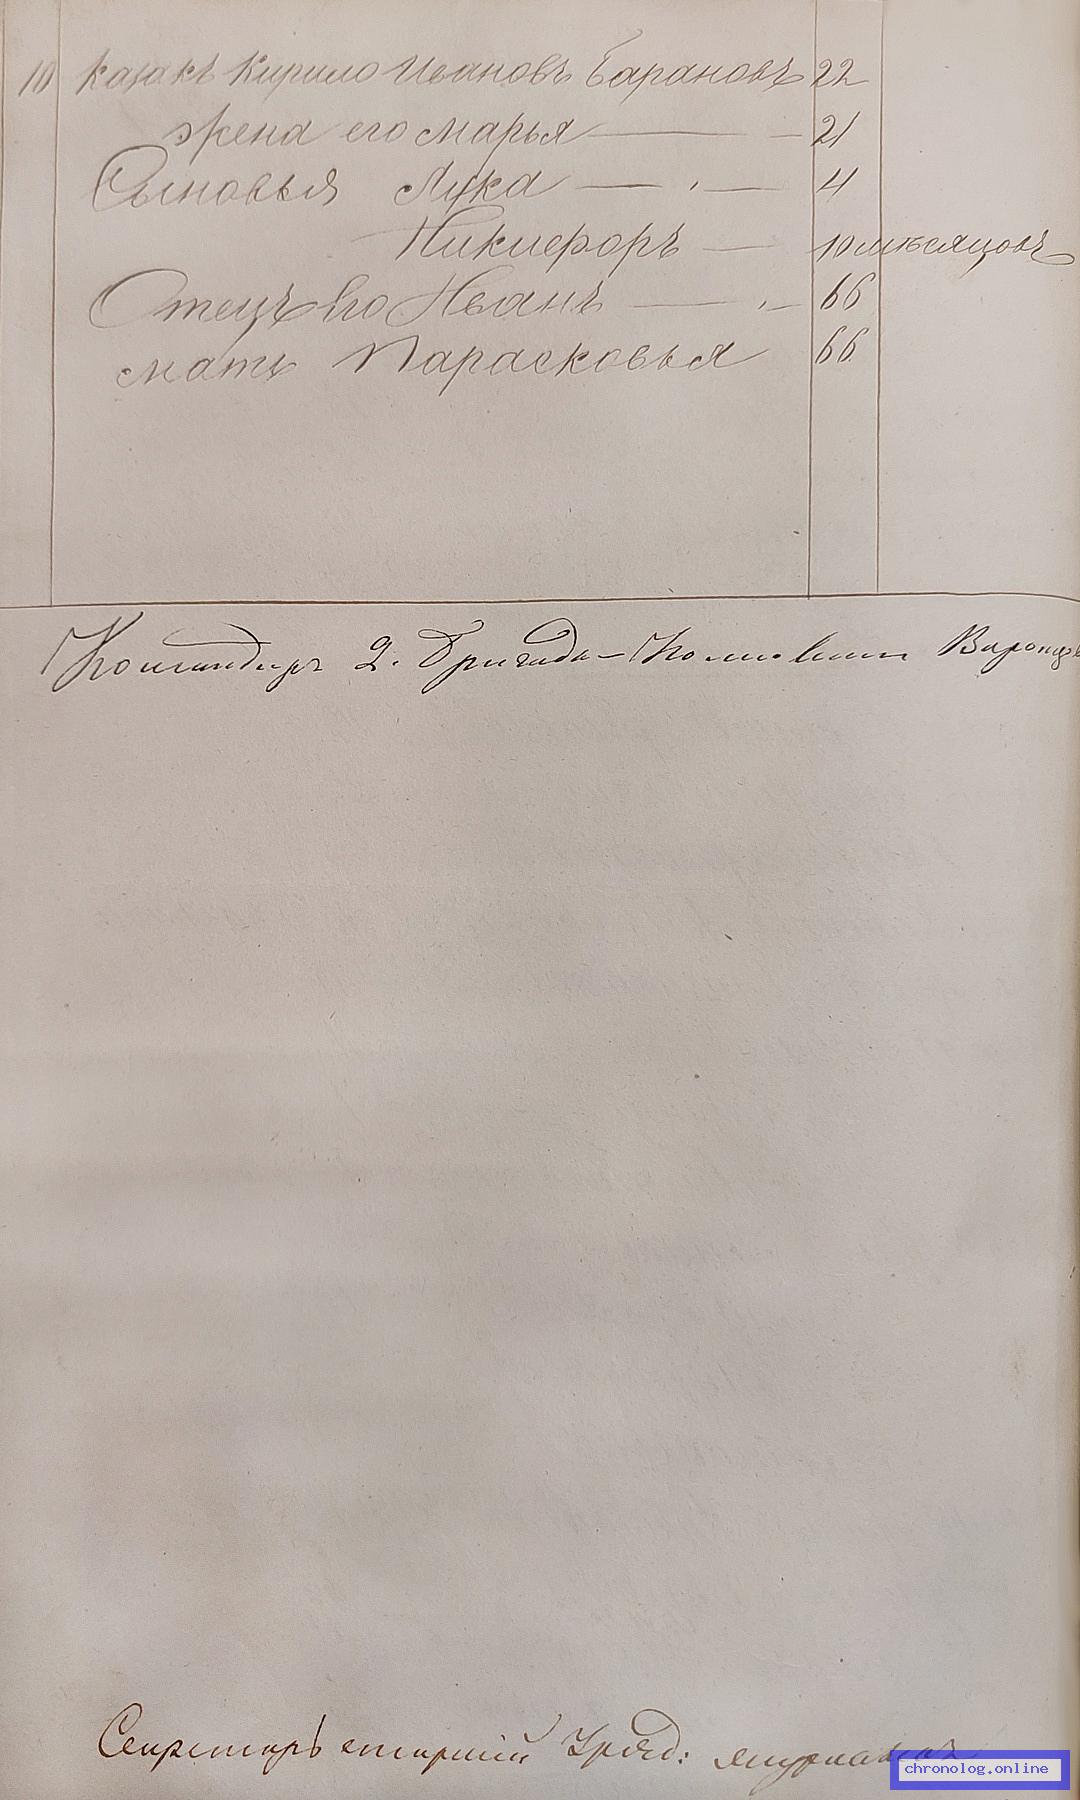 10 казакъ Кирило Ивановъ Барановъ 22
жена его Марья 21
Сыновья Лука 4
Никифоръ 10 мѣсяцовъ
Отецъ Его Иванъ 66
мать Парасковья 66
Командиръ 2. Бригады Полковникъ
Секретарь старшій Уряд:
chronolog.online